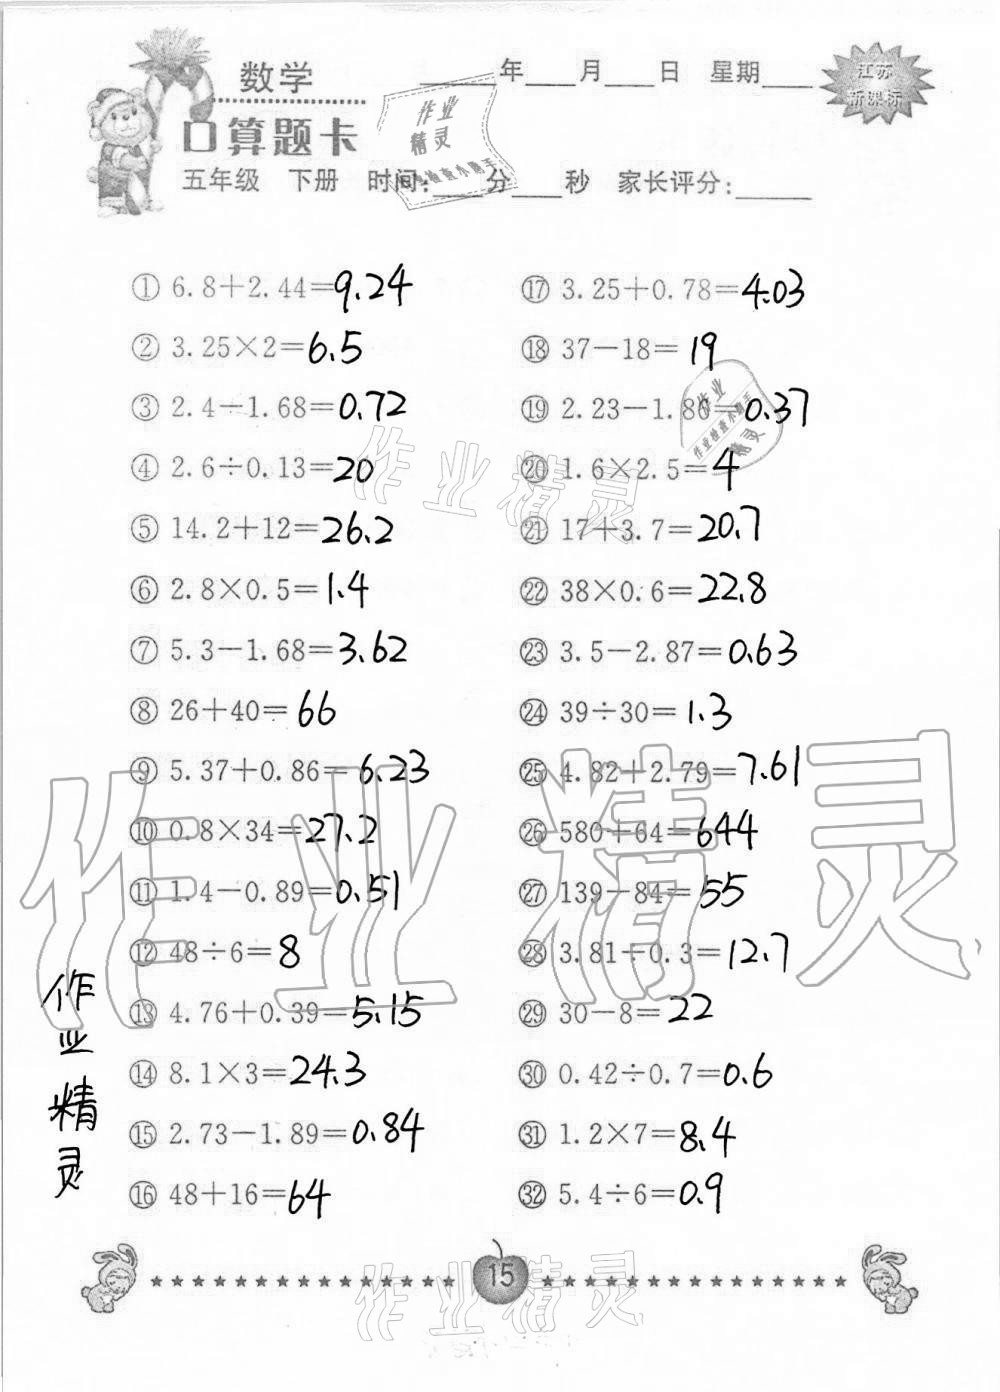 数学
____年____月____日 星期____
江苏
新课标
口算题卡
五年级 下册 时间:____分____秒 家长评分:______
作业
精灵
作业检查小助手
① 6.8+2.44=9.24
② 3.25×2=6.5
③ 2.4-1.68=0.72
④ 2.6÷0.13=20
⑤ 14.2+12=26.2
⑥ 2.8×0.5=1.4
⑦ 5.3-1.68=3.62
⑧ 26+40=66
⑨ 5.37+0.86=6.23
⑩ 0.8×34=27.2
⑪ 1.4-0.89=0.51
⑫ 48÷6=8
⑬ 4.76+0.39=5.15
⑭ 8.1×3=24.3
⑮ 2.73-1.89=0.84
⑯ 48+16=64
⑰ 3.25+0.78=4.03
⑱ 37-18=19
⑲ 2.23-1.86=0.37
⑳ 1.6×2.5=4
㉑ 17+3.7=20.7
㉒ 38×0.6=22.8
㉓ 3.5-2.87=0.63
㉔ 39÷30=1.3
㉕ 4.82+2.79=7.61
㉖ 580+64=644
㉗ 139-84=55
㉘ 3.81÷0.3=12.7
㉙ 30-8=22
㉚ 0.42÷0.7=0.6
㉛ 1.2×7=8.4
㉜ 5.4÷6=0.9
作业
作业检查小助手
精灵
作业精灵
作业精灵
作业精灵
15
作业精灵